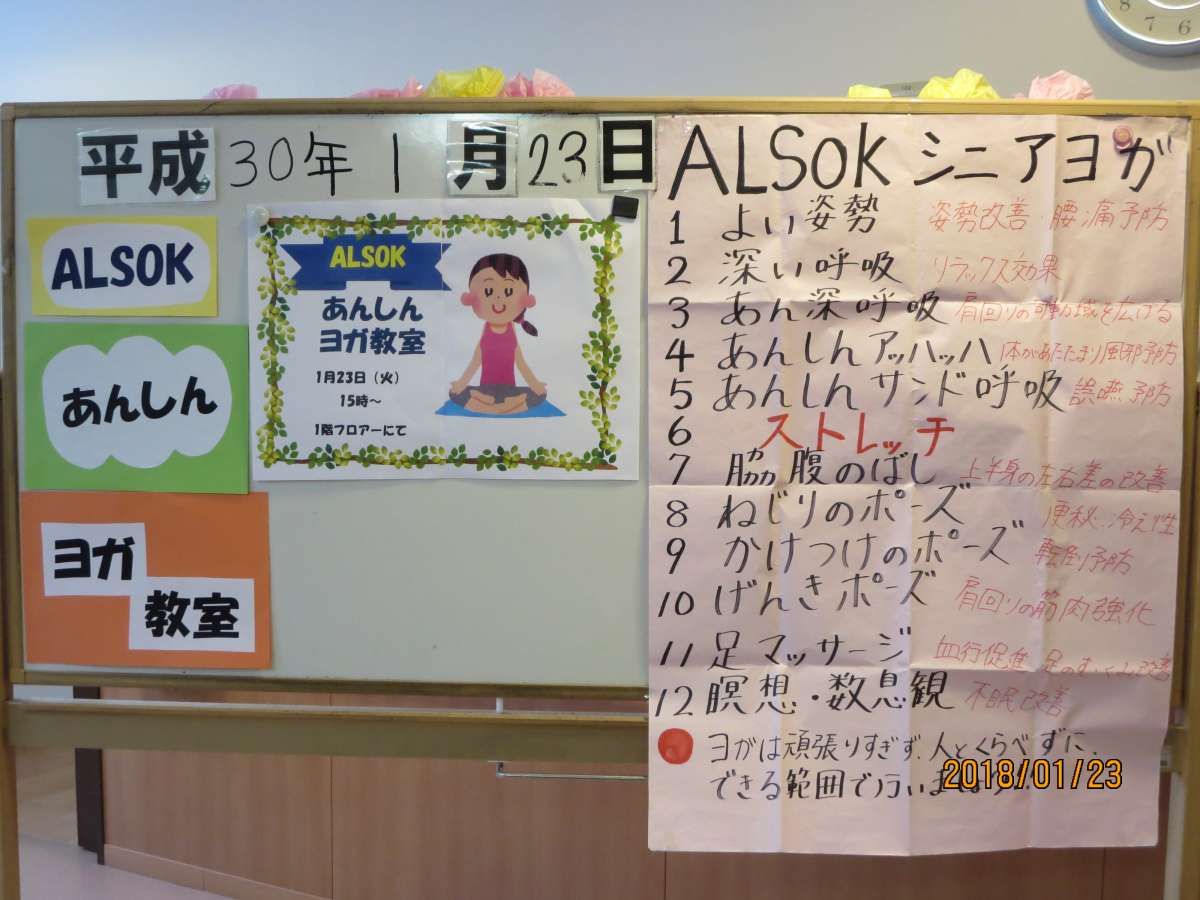 平成30年1月23日
ALSOK
あんしん
ヨガ
教室
ALSOK
あんしん
ヨガ教室
1月23日（火）
15時～
1階フロアーにて
ALSOK シニアヨガ
1 よい姿勢 姿勢改善・腰痛予防
2 深い呼吸 リラックス効果
3 あん深呼吸 肩回りの可動域を広げる
4 あんしんアッハッハ 体があたたまり風邪予防
5 あんしんサンド呼吸 誤嚥予防
6 ストレッチ
7 脇腹のばし 上半身の左右差の改善
8 ねじりのポーズ 便秘、冷え性
9 かけつけのポーズ 転倒予防
10 げんきポーズ 肩回りの筋肉強化
11 足マッサージ 血行促進 足のむくみ改善
12 瞑想・数息観 不眠改善
ヨガは頑張りすぎず、人とくらべずに、
できる範囲で行いましょう
2018/01/23
8 7 6